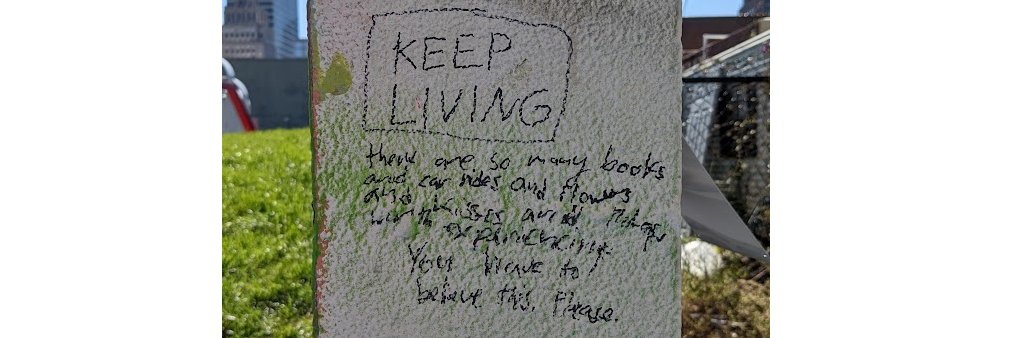 KEEP
LIVING
there are so many books
and car rides and flowers
and kisses and things
worth experiencing
You have to
believe this. Please.